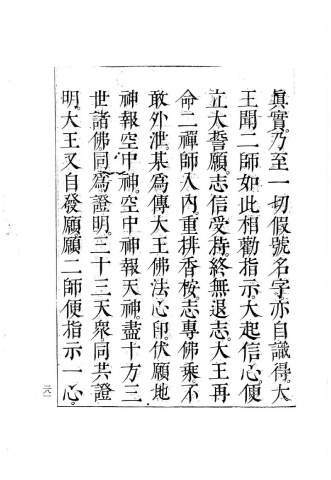 眞實。乃至一切假號名字。亦自識得。大
王聞二師如此相勸指示。大起信心。便
立大誓願。志信受持。終無退志。大王再
命二禪師入內。重排香桉。志專佛乘。不
敢外泄。某爲傳大王佛法心印。伏願地
神報空中神。空中神報天神。盡十方三
世諸佛。同爲證明。三十三天衆。同共證
明。大王又自發願。願二師便指示一心。
二六一